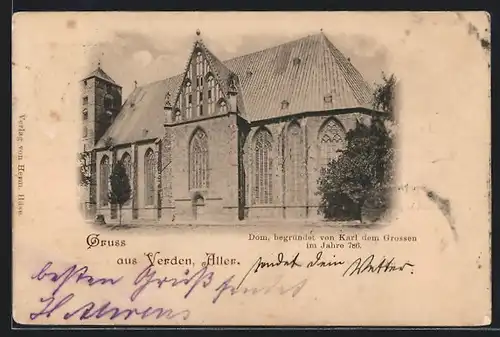 Verlag von Herm. Hüve.
Gruss
aus Verden, Aller.
Dom, begründet von Karl dem Grossen
im Jahre 786.
besten Gruß sendet dein Vetter.
H. Ahrens